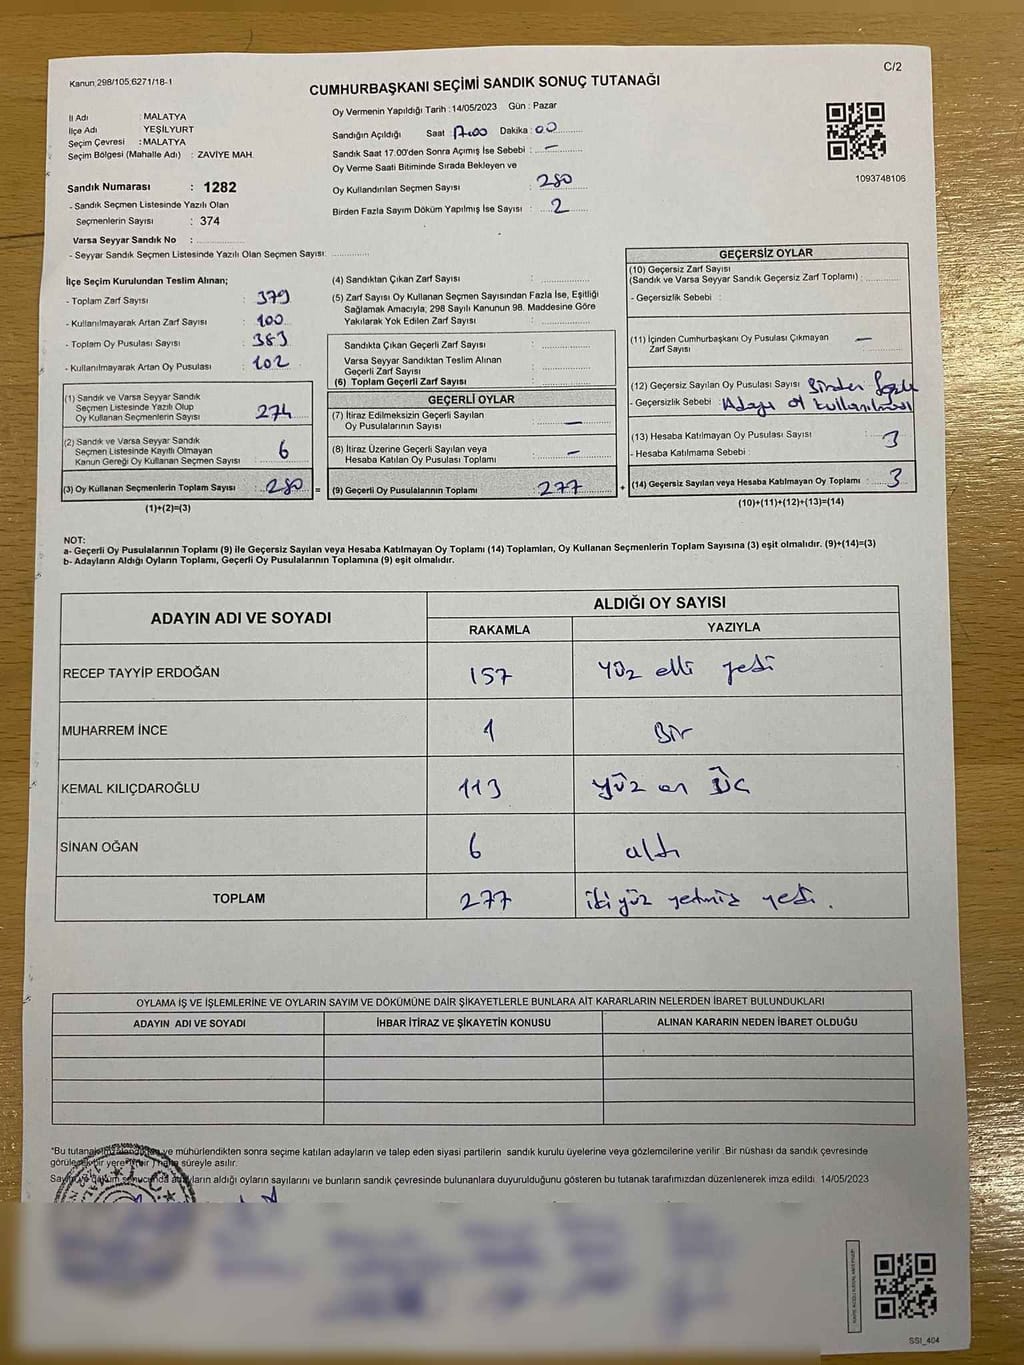 Kanun 298/105,6271/18-1
C/2
CUMHURBAŞKANI SEÇİMİ SANDIK SONUÇ TUTANAĞI
İl Adı : MALATYA
İlçe Adı : YEŞİLYURT
Seçim Çevresi : MALATYA
Seçim Bölgesi (Mahalle Adı) : ZAVİYE MAH.
Sandık Numarası : 1282
- Sandık Seçmen Listesinde Yazılı Olan
Seçmenlerin Sayısı : 374
Varsa Seyyar Sandık No :
- Seyyar Sandık Seçmen Listesinde Yazılı Olan Seçmen Sayısı:
Oy Vermenin Yapıldığı Tarih : 14/05/2023 Gün : Pazar
Sandığın Açıldığı Saat : 17:00 Dakika : 00
Sandık Saat 17:00'den Sonra Açımış İse Sebebi : –
Oy Verme Saati Bitiminde Sırada Bekleyen ve
Oy Kullandırılan Seçmen Sayısı : 280
Birden Fazla Sayım Döküm Yapılmış İse Sayısı : 2
1093748106
İlçe Seçim Kurulundan Teslim Alınan;
- Toplam Zarf Sayısı : 379
- Kullanılmayarak Artan Zarf Sayısı : 100
- Toplam Oy Pusulası Sayısı : 383
- Kullanılmayarak Artan Oy Pusulası : 102
(1) Sandık ve Varsa Seyyar Sandık
Seçmen Listesinde Yazılı Olup
Oy Kullanan Seçmenlerin Sayısı : 274
(2) Sandık ve Varsa Seyyar Sandık
Seçmen Listesinde Kayıtlı Olmayan
Kanun Gereği Oy Kullanan Seçmen Sayısı : 6
(3) Oy Kullanan Seçmenlerin Toplam Sayısı : 280 =
(1)+(2)=(3)
(4) Sandıktan Çıkan Zarf Sayısı :
(5) Zarf Sayısı Oy Kullanan Seçmen Sayısından Fazla İse, Eşitliği
Sağlamak Amacıyla; 298 Sayılı Kanunun 98. Maddesine Göre
Yakılarak Yok Edilen Zarf Sayısı :
Sandıkta Çıkan Geçerli Zarf Sayısı :
Varsa Seyyar Sandıktan Teslim Alınan
Geçerli Zarf Sayısı :
(6) Toplam Geçerli Zarf Sayısı :
GEÇERLİ OYLAR
(7) İtiraz Edilmeksizin Geçerli Sayılan
Oy Pusulalarının Sayısı : –
(8) İtiraz Üzerine Geçerli Sayılan veya
Hesaba Katılan Oy Pusulası Toplamı : –
(9) Geçerli Oy Pusulalarının Toplamı : 277 +
GEÇERSİZ OYLAR
(10) Geçersiz Zarf Sayısı
(Sandık ve Varsa Seyyar Sandık Geçersiz Zarf Toplamı) :
- Geçersizlik Sebebi :
(11) İçinden Cumhurbaşkanı Oy Pusulası Çıkmayan
Zarf Sayısı : –
(12) Geçersiz Sayılan Oy Pusulası Sayısı : Birden fazla
- Geçersizlik Sebebi : Adaya oy kullanılması
(13) Hesaba Katılmayan Oy Pusulası Sayısı : 3
- Hesaba Katılmama Sebebi :
(14) Geçersiz Sayılan veya Hesaba Katılmayan Oy Toplamı : 3
(10)+(11)+(12)+(13)=(14)
NOT:
a- Geçerli Oy Pusulalarının Toplamı (9) ile Geçersiz Sayılan veya Hesaba Katılmayan Oy Toplamı (14) Toplamları, Oy Kullanan Seçmenlerin Toplam Sayısına (3) eşit olmalıdır. (9)+(14)=(3)
b- Adayların Aldığı Oyların Toplamı, Geçerli Oy Pusulalarının Toplamına (9) eşit olmalıdır.
ADAYIN ADI VE SOYADI
ALDIĞI OY SAYISI
RAKAMLA YAZIYLA
RECEP TAYYİP ERDOĞAN 157 Yüz elli yedi
MUHARREM İNCE 1 Bir
KEMAL KILIÇDAROĞLU 113 yüz on üç
SİNAN OĞAN 6 altı
TOPLAM 277 iki yüz yetmiş yedi.
OYLAMA İŞ VE İŞLEMLERİNE VE OYLARIN SAYIM VE DÖKÜMÜNE DAİR ŞİKAYETLERLE BUNLARA AİT KARARLARIN NELERDEN İBARET BULUNDUKLARI
ADAYIN ADI VE SOYADI İHBAR İTİRAZ VE ŞİKAYETİN KONUSU ALINAN KARARIN NEDEN İBARET OLDUĞU
*Bu tutanak ve mühürlendikten sonra seçime katılan adayların ve talep eden siyasi partilerin sandık kurulu üyelerine veya gözlemcilerine verilir. Bir nüshası da sandık çevresinde
görülen bir yere süreyle asılır.
aldığı oyların sayılarını ve bunların sandık çevresinde bulunanlara duyurulduğunu gösteren bu tutanak tarafımızdan düzenlenerek imza edildi. 14/05/2023
SSI_404